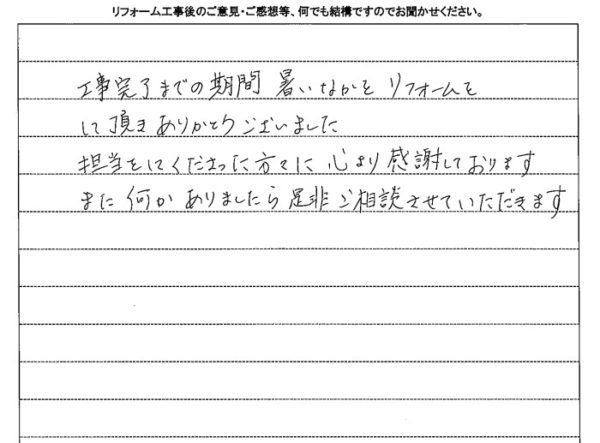 リフォーム工事後のご意見・ご感想等、何でも結構ですのでお聞かせください。
工事完了までの期間 暑いなかを リフォームを
して頂き ありがとうございました
担当をしてくださった方々に 心より 感謝しております
また 何か ありましたら 是非 ご相談させていただきます